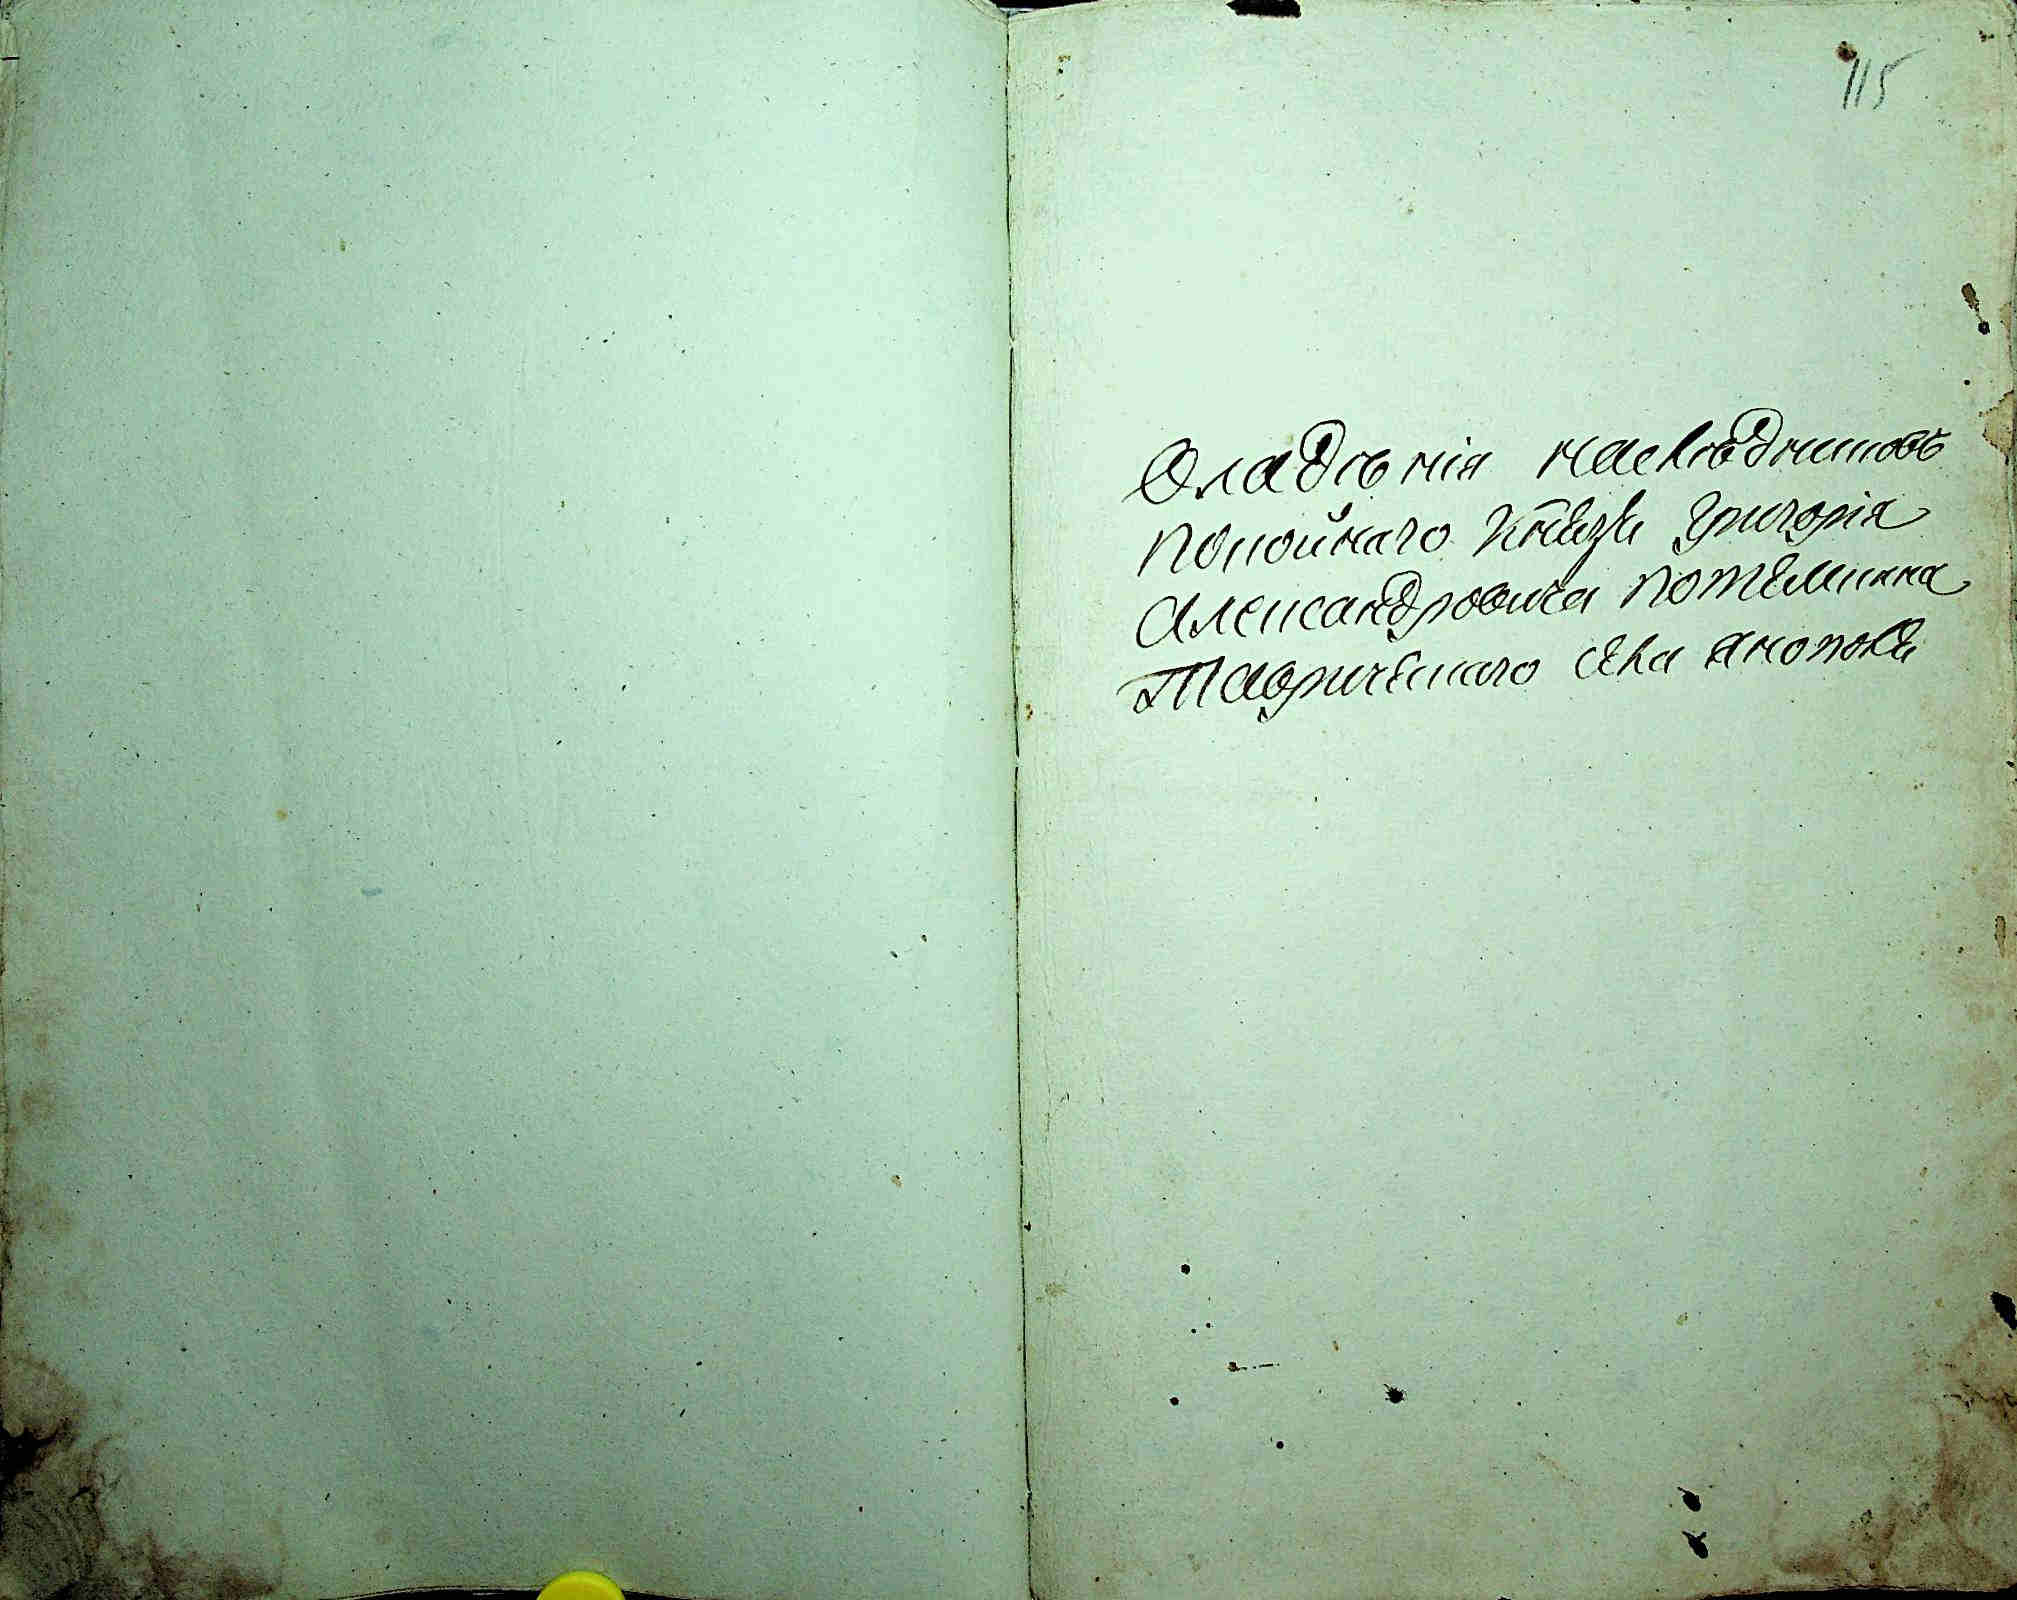 115
владѣнія наслѣдниковъ
покойнаго князя григорія
александровича потемкина
таврическаго села янополя